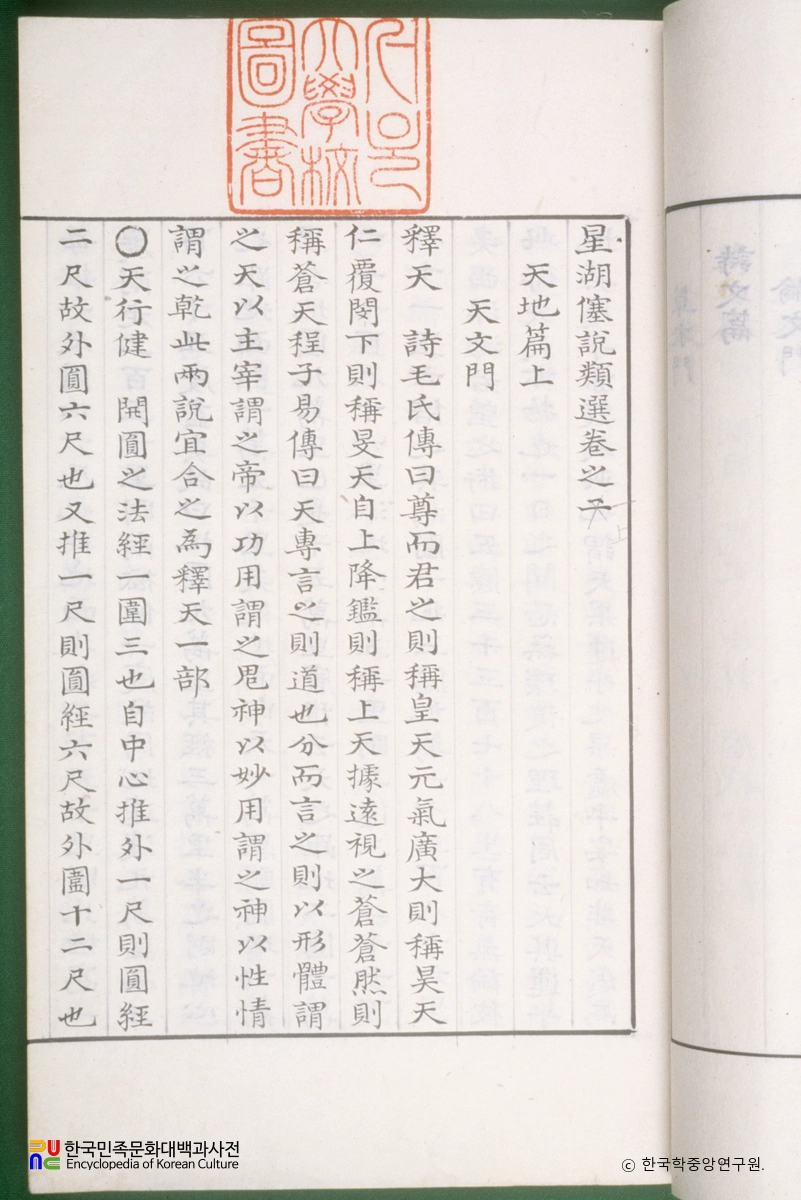 서울
大學校
圖書
星湖僿說類選卷之
一上
天地篇上
天文門
釋天 詩毛氏傳曰尊而君之則稱皇天元氣廣大則稱昊天
仁覆閔下則稱旻天自上降鑑則稱上天據遠視之蒼蒼然則
稱蒼天程子易傳曰天專言之則道也分而言之則以形體謂
之天以主宰謂之帝以功用謂之鬼神以妙用謂之神以性情
謂之乾此兩說宜合之爲釋天一部
〇天行健 開圎之法經一圍三也自中心推外一尺則圎經
二尺故外圎六尺也又推一尺則圎經六尺故外圍十二尺也
한국민족문화대백과사전
Encyclopedia of Korean Culture
© 한국학중앙연구원.